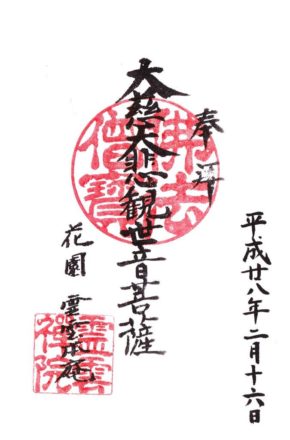 平成廿八年二月十六日
奉拝
大慈大悲観世音菩薩
花園 霊雲庵
佛法
僧寶
靈雲
禪院